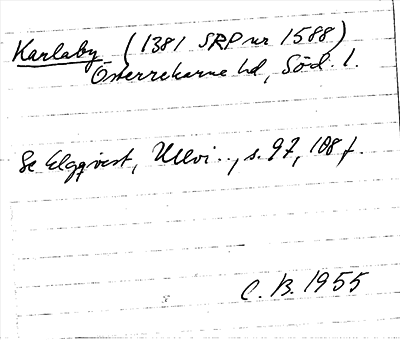 Karlaby (1381 SRP nr 1588)
Österrekarne hd, Söd. l.
Se Elgqvist, Ullvi.., s. 97, 108 f.
C. B. 1955